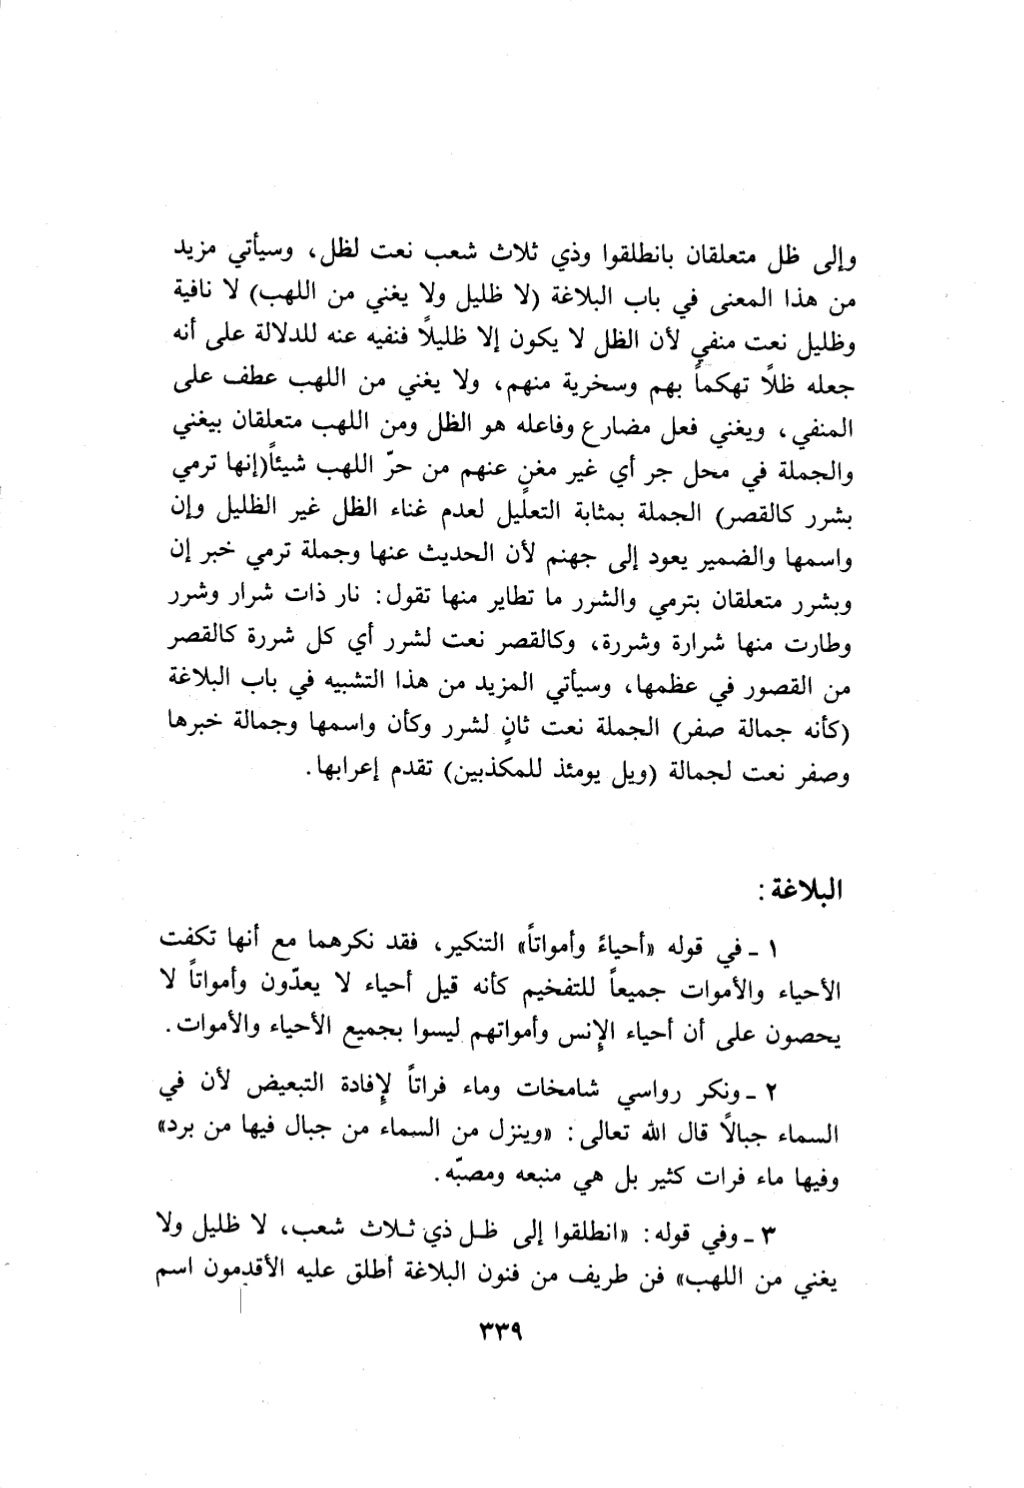 وإلى ظل متعلقان بانطلقوا وذي ثلاث شعب نعت لظل، وسيأتي مزيد
من هذا المعنى في باب البلاغة (لا ظليل ولا يغني من اللهب) لا نافية
وظليل نعت منفي لأن الظل لا يكون إلا ظليلًا فنفيه عنه للدلالة على أنه
جعله ظلًا تهكماً بهم وسخرية منهم، ولا يغني من اللهب عطف على
المنفي، ويغني فعل مضارع وفاعله هو الظل ومن اللهب متعلقان بيغني
والجملة في محل جر أي غير مغنٍ عنهم من حرّ اللهب شيئاً(إنها ترمي
بشرر كالقصر) الجملة بمثابة التعليل لعدم غناء الظل غير الظليل وإن
واسمها والضمير يعود إلى جهنم لأن الحديث عنها وجملة ترمي خبر إن
وبشرر متعلقان بترمي والشرر ما تطاير منها تقول: نار ذات شرار وشرر
وطارت منها شرارة وشررة، وكالقصر نعت لشرر أي كل شررة كالقصر
من القصور في عظمها، وسيأتي المزيد من هذا التشبيه في باب البلاغة
(كأنه جمالة صفر) الجملة نعت ثانٍ لشرر وكأن واسمها وجمالة خبرها
وصفر نعت لجمالة (ويل يومئذ للمكذبين) تقدم إعرابها.
البلاغة:
١ ـ في قوله «أحياءً وأمواتاً» التنكير، فقد نكرهما مع أنها تكفت
الأحياء والأموات جميعاً للتفخيم كأنه قيل أحياء لا يعدّون وأمواتاً لا
يحصون على أن أحياء الإنس وأمواتهم ليسوا بجميع الأحياء والأموات.
٢ ـ ونكر رواسي شامخات وماء فراتاً لإفادة التبعيض لأن في
السماء جبالًا قال الله تعالى: «وينزل من السماء من جبال فيها من برد»
وفيها ماء فرات كثير بل هي منبعه ومصبّه.
٣ ـ وفي قوله: «انطلقوا إلى ظل ذي ثلاث شعب، لا ظليل ولا
يغني من اللهب» فن طريف من فنون البلاغة أطلق عليه الأقدمون اسم
٣٣٩